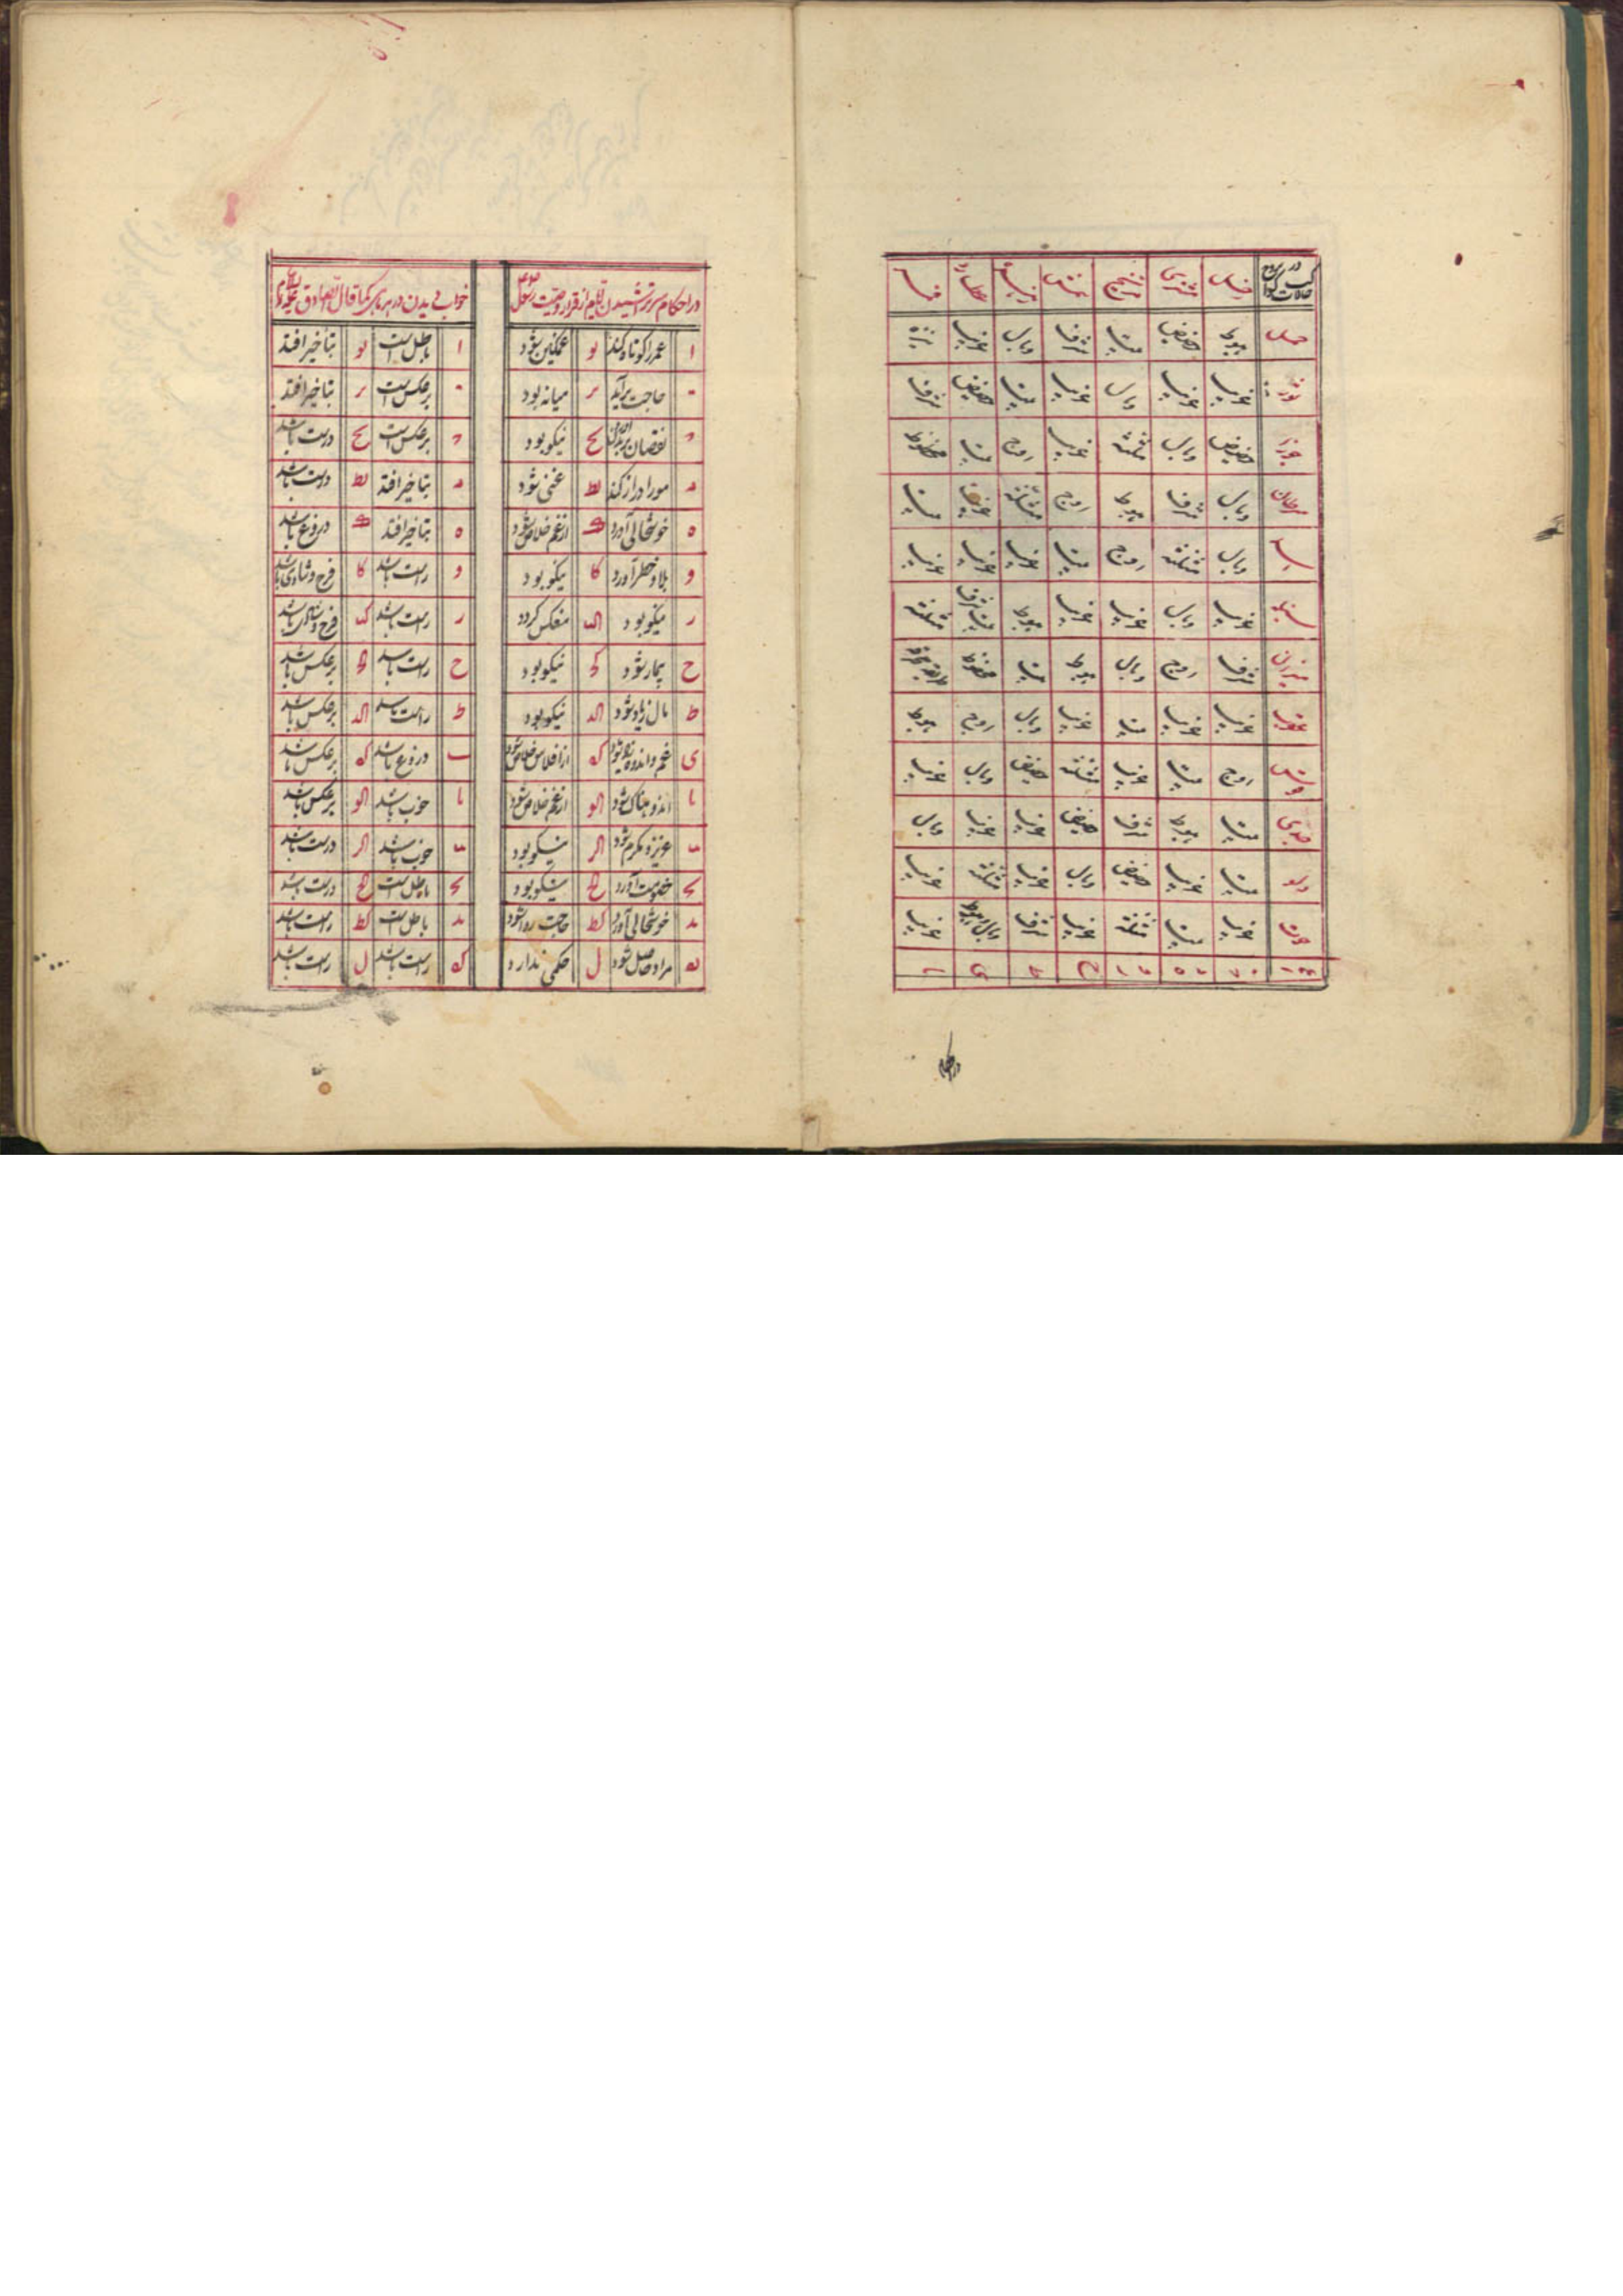 در حالات کواکب در بروج زحل مشتری مریخ شمس زهره عطارد قمر
حمل هبوط حضیض بیت شرف وبال غریب
ثور غریب غریب وبال غریب بیت حضیض شرف
جوزا حضیض وبال مثلثه غریب اوج بیت محظوظ
سرطان وبال شرف هبوط اوج مثلثه غریب بیت
اسد وبال مثلثه اوج بیت غریب غریب غریب
سنبله غریب وبال غریب غریب هبوط بیت شرف مثلثه
میزان شرف اوج وبال هبوط بیت محظوظ
عقرب غریب غریب بیت غریب وبال اوج هبوط
قوس اوج بیت غریب مثلثه حضیض وبال غریب
جدی بیت هبوط شرف حضیض غریب غریب وبال
دلو بیت غریب حضیض وبال غریب مثلثه غریب
حوت غریب بیت مثلثه غریب شرف وبال هبوط غریب
در احکام سر تراشیدن ایام از قرار وصیت رسول
ا عمر را کوتاه کند یو غمگین شود
ب حاجت برآید یز میانه بود
ج نقصان بدن یح نیکو بود
د مو را دراز کند یط غنی شود
ه خوشحالی آورد ک از غم خلاص شود
و بلا و خطر آورد کا نیکو بود
ز نیکو بود کب منعکس گردد
ح بیمار شود کج نیکو بود
ط مال زیاد شود کد نیکو بود
ی غم و اندوه که از افلاس خلاص شود
یا اندوهناک شود کو از غم خلاص شود
یب عزیز و مکرم شود کز نیکو بود
یج خصومت آورد کح نیکو بود
ید خوشحالی آورد کط حاجت روا شود
یه مراد حاصل شود ل حکمی ندارد
خواب دیدن در هر ماهی کما قال الصادق علیه السلام
ا باطل است یو بتأخیر افتد
ب برعکس است یز بتأخیر افتد
ج برعکس است یح درست باشد
د بتأخیر افتد یط درست باشد
ه بتأخیر افتد ک دروغ باشد
و راست باشد کا فرح و شادی باشد
ز راست باشد کب فرح و شادی باشد
ح راست باشد کج برعکس باشد
ط راست باشد کد برعکس باشد
ی دروغ باشد که برعکس باشد
یا خوب باشد کو برعکس باشد
یب خوب باشد کز درست باشد
یج باطل است کح درست باشد
ید باطل است کط راست باشد
یه راست باشد ل راست باشد